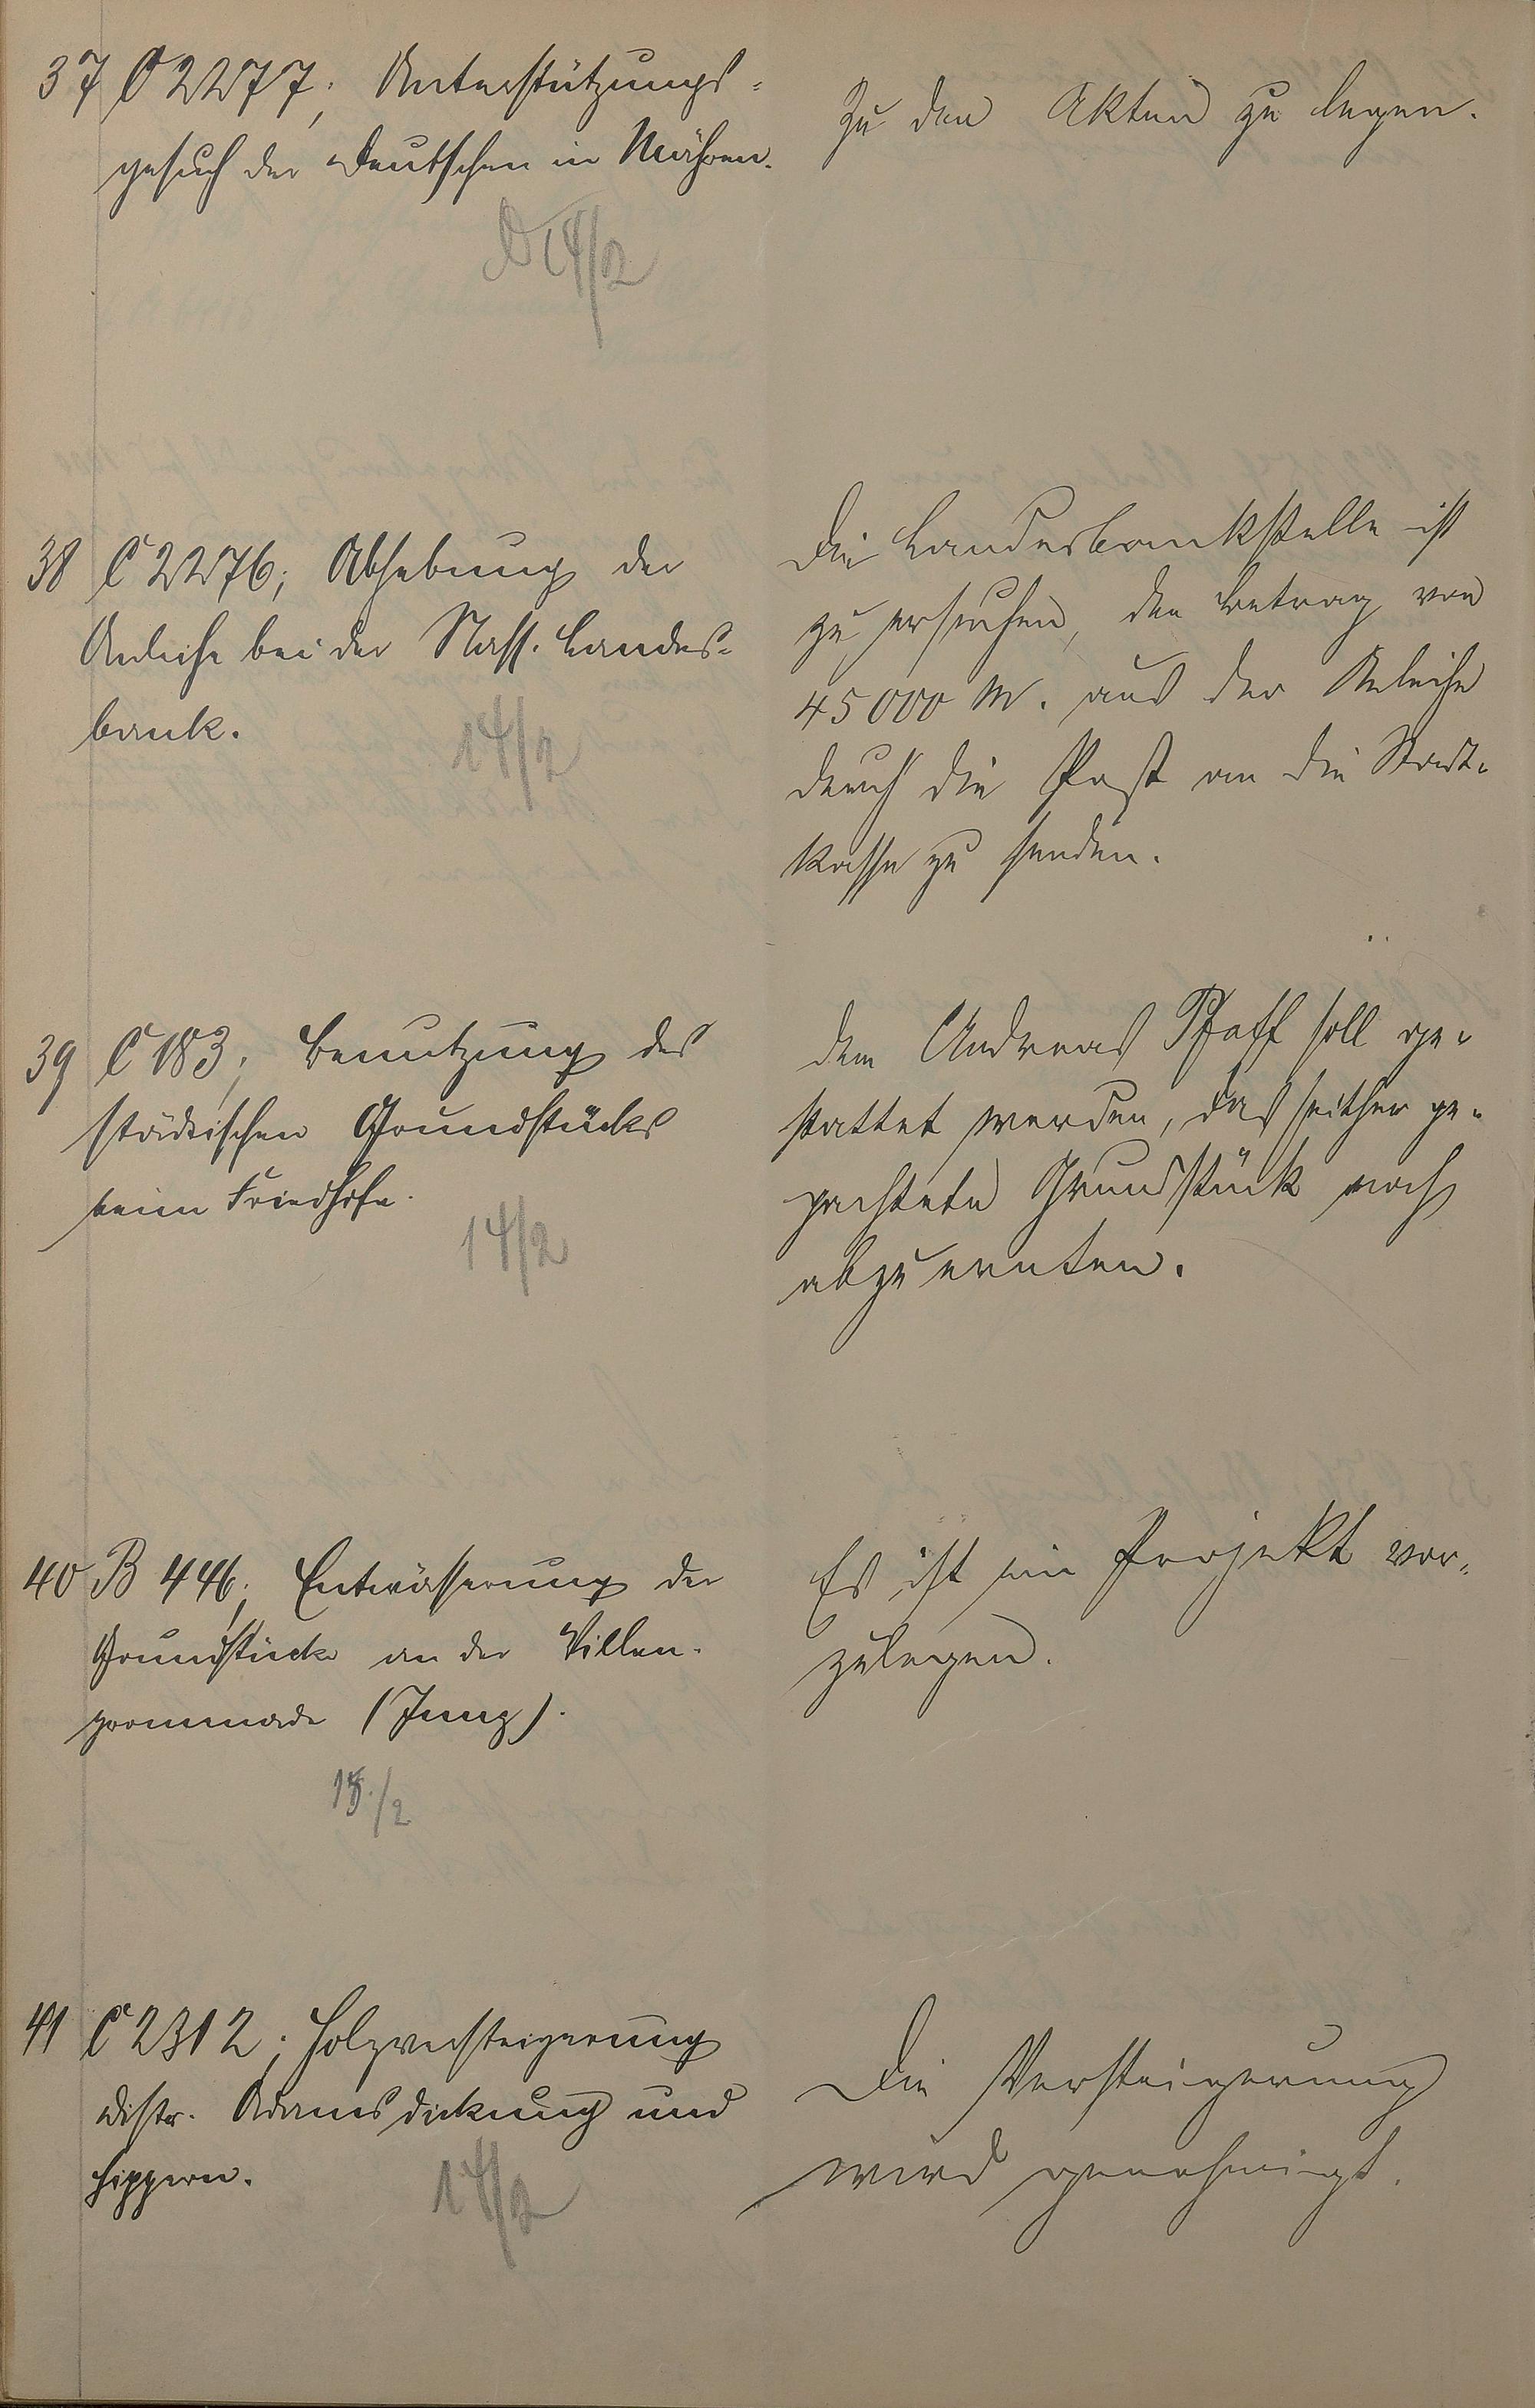 37 C 2277; Unterstützungs-
gesuch der Deutschen in Mähren.
14/2
Zu den Akten zu legen.
38 C 2276; Abhebung der
Anleihe bei der Nass. Landes-
bank.
14/2
Die Landesbankstelle ist
zu ersuchen, den Betrag von
45000 M. aus der Anleihe
durch die Post an die Stadt-
kasse zu senden.
39 C 183; Benutzung des
städtischen Grundstücks
beim Friedhofe.
14/2
Dem Andreas Pfaff soll ge-
stattet werden, das seither ge-
pachtete Grundstück noch
abzuernten.
40 B 446; Entwässerung der
Grundstücke an der Villen-
promenade (Jung).
15./2
Es ist ein Projekt vor-
zulegen.
41 C 2312; Holzversteigerung
Distr. Adamsdickung und
Hippern.
14/2
Die Versteigerung
wird genehmigt.